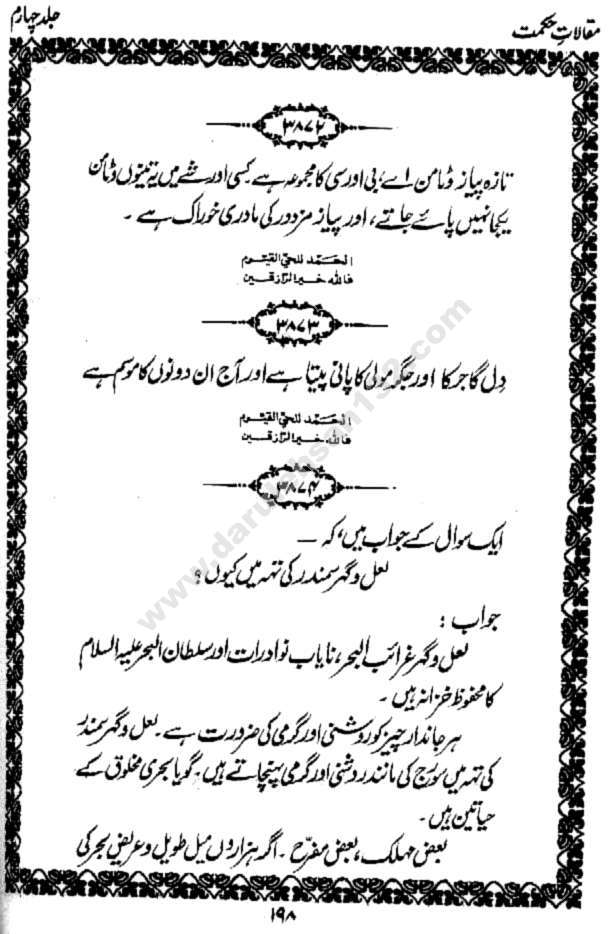 مقالاتِ حکمت
جلد چہارم
۳۸۷۲
تازہ پیاز وٹامن اے، بی اور سی کا مجموعہ ہے کسی اور شے میں یہ تینوں وٹامن
یکجا نہیں پائے جاتے، اور پیاز مزدور کی مادری خوراک ہے ۔
الحَمد للحیّ القیّوم
فاللہ خیر الرّازقین
۳۸۷۳
دِل گاجر کا اور جگر مولی کا پانی پیتا ہے اور آج ان دونوں کا موسم ہے
الحَمد للحیّ القیّوم
فاللہ خیر الرّازقین
۳۸۷۴
ایک سوال کے جواب میں، کہ —
لعل و گہر سمندر کی تہہ میں کیوں ؟
جواب :
لعل و گہر غرائب البحر، نایاب نوادرات اور سلطان البحر علیہ السلام
کا محفوظ خزانہ ہیں ۔
ہر جاندار چیز کو روشنی اور گرمی کی ضرورت ہے ۔ لعل و گہر سمندر
کی تہہ میں سورج کی مانند روشنی اور گرمی پہنچاتے ہیں ۔ گویا بحری مخلوق کے
حیاتین ہیں ۔
بعض مہلک، بعض مفرّح ۔ اگر ہزاروں میل طویل و عریض بحر کی
۱۹۸
www.darulehsan132.com